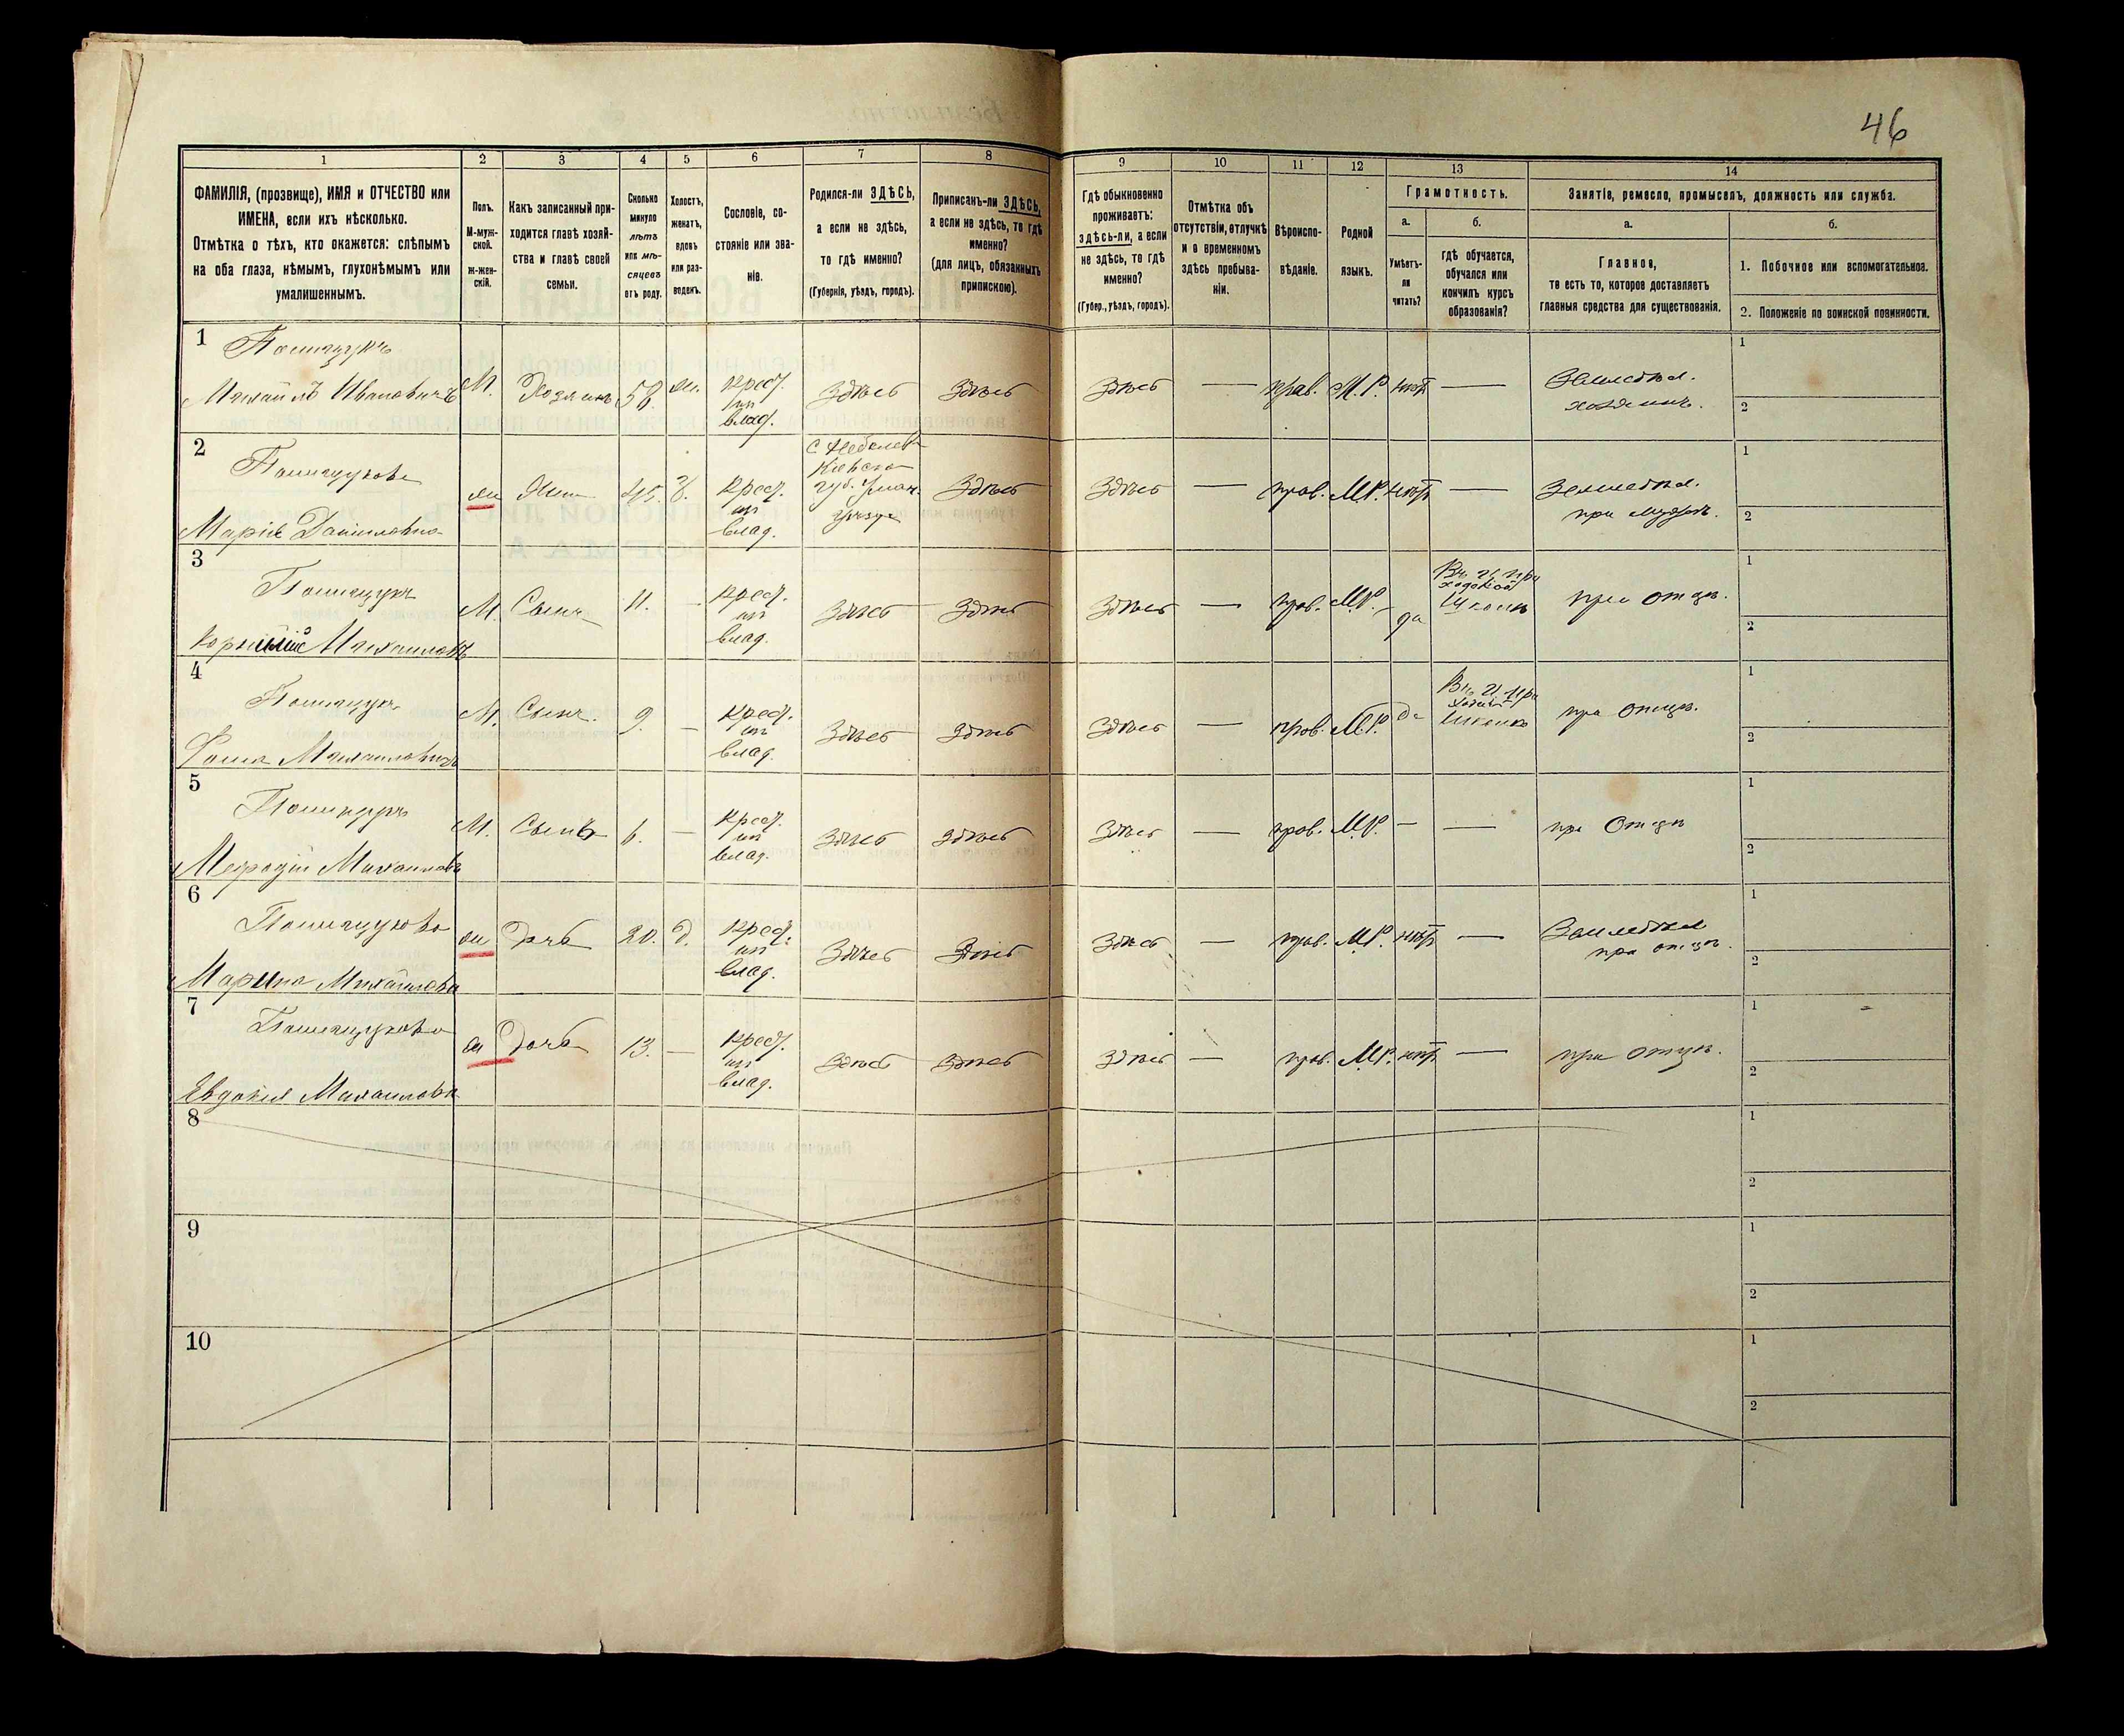 46
1
2
3
4
5
6
7
8
9
10
11
12
13
14
ФАМИЛІЯ, (прозвище), ИМЯ и ОТЧЕСТВО или
ИМЕНА, если ихъ нѣсколько.
Отмѣтка о тѣхъ, кто окажется: слѣпымъ
на оба глаза, нѣмымъ, глухонѣмымъ или
умалишеннымъ.
Полъ.
М-муж-
ской.
ж-жен-
скій.
Какъ записанный при-
ходится главѣ хозяй-
ства и главѣ своей
семьи.
Сколько
минуло
лѣтъ
или мѣ-
сяцевъ
отъ роду.
Холостъ,
женатъ,
вдовъ
или раз-
веденъ.
Сословіе, со-
стояніе или зва-
ніе.
Родился-ли ЗДѢСЬ,
а если не здѣсь,
то гдѣ именно?
(Губернія, уѣздъ, городъ).
Приписанъ-ли ЗДѢСЬ,
а если не здѣсь, то гдѣ
именно?
(для лицъ, обязанныхъ
припискою).
Гдѣ обыкновенно
проживаетъ:
здѣсь-ли, а если
не здѣсь, то гдѣ
именно?
(Губер., уѣздъ, городъ).
Отмѣтка объ
отсутствіи, отлучкѣ
и о временномъ
здѣсь пребыва-
ніи.
Вѣроиспо-
вѣданіе.
Родной
языкъ.
Грамотность.
а.
Умѣетъ-
ли
читать?
б.
гдѣ обучается,
обучался или
кончилъ курсъ
образованія?
Занятіе, ремесло, промыселъ, должность или служба.
а.
Главное,
то есть то, которое доставляетъ
главныя средства для существованія.
б.
1. Побочное или вспомогательное.
2. Положеніе по воинской повинности.
1
Полищукъ
Михаилъ Ивановичъ
М.
Хозяинъ
58.
ж.
крест.
из
влад.
Здѣсь
Здѣсь
Здѣсь
—
прав.
М.Р.
нѣтъ
—
Земледѣл.
хозяинъ.
1
2
2
Полищукова
Марія Даниловна
ж
Жена
45.
З.
крест.
из
влад.
Кіевской
губ. Уман.
Здѣсь
Здѣсь
—
прав.
М.Р.
нѣтъ
—
Земледѣл.
при мужѣ.
1
2
3
Полищукъ
Михаиловъ
М.
Сынъ
11.
—
крест.
из
влад.
Здѣсь
Здѣсь
Здѣсь
—
прав.
М.Р.
да
школѣ
при отцѣ.
1
2
4
Полищукъ
Фома Михаиловичъ
М.
Сынъ.
9.
—
крест.
из
влад.
Здѣсь
Здѣсь
Здѣсь
—
прав.
М.Р.
да
школѣ
при отцѣ.
1
2
5
Полищукъ
Мефодій Михаиловъ
М.
Сынъ
6.
—
крест.
из
влад.
Здѣсь
Здѣсь
Здѣсь
—
прав.
М.Р.
—
—
при отцѣ
1
2
6
Полищукова
Марина Михаилова
ж
Дочь
20.
д.
крест.
из
влад.
Здѣсь
Здѣсь
Здѣсь
—
прав.
М.Р.
нѣтъ
—
Земледѣл
при отцѣ.
1
2
7
Полищукова
Евдокія Михаилова
ж
Дочь
13.
—
крест.
из
влад.
Здѣсь
Здѣсь
Здѣсь
—
прав.
М.Р.
нѣтъ
—
при отцѣ.
1
2
8
1
2
9
1
2
10
1
2